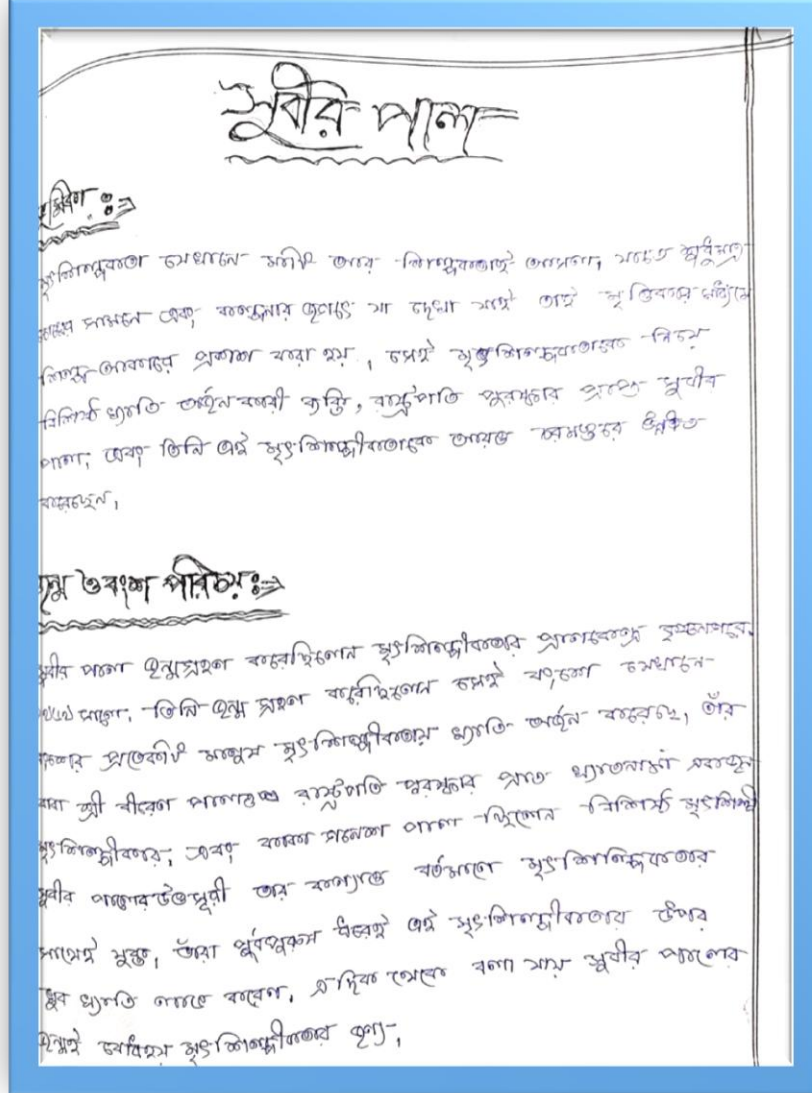 সুবীর পাল
ভূমিকা :→
মৃৎশিল্পকলা যেখানে মাটি আর শিল্পকলাই আসল, যাতে শুধুমাত্র
চোখের সামনে এবং কল্পনার জগতে যা দেখা যায় তাই মৃত্তিকার মাধ্যমে
শিল্প আকারে প্রকাশ করা হয়, সেই মৃৎশিল্পকলাকে নিয়ে
বিশিষ্ট খ্যাতি অর্জনকারী ব্যক্তি, রাষ্ট্রপতি পুরস্কার প্রাপ্ত সুবীর
পাল, এবং তিনি এই মৃৎশিল্পীকলাকে আরও চরমস্তরে উন্নীত
করেছেন,
জন্ম ও বংশ পরিচয় :→
সুবীর পাল জন্মগ্রহণ করেছিলেন মৃৎশিল্পীকলার প্রাণকেন্দ্র
সালে, তিনি জন্ম গ্রহণ করেছিলেন সেই বংশে যেখানে
প্রত্যেকটি মানুষ মৃৎশিল্পীকলায় খ্যাতি অর্জন করেছে, তাঁর
বাবা শ্রী বীরেন পালও রাষ্ট্রপতি পুরস্কার প্রাপ্ত খ্যাতনামা একজন
মৃৎশিল্পীকার, এবং কাকা গনেশ পাল ছিলেন বিশিষ্ট মৃৎশিল্পী
সুবীর পালের উত্তসূরী তার কন্যাও বর্তমানে মৃৎশিল্পিকলার
সাথেই যুক্ত, তাঁরা পূর্বপুরুষ ধরেই এই মৃৎশিল্পীকলার উপর
খুব খ্যাতি লাভ করেন, এদিক থেকে বলা যায় সুবীর পালের
জন্মই বোধহয় মৃৎশিল্পীকলার জন্য,